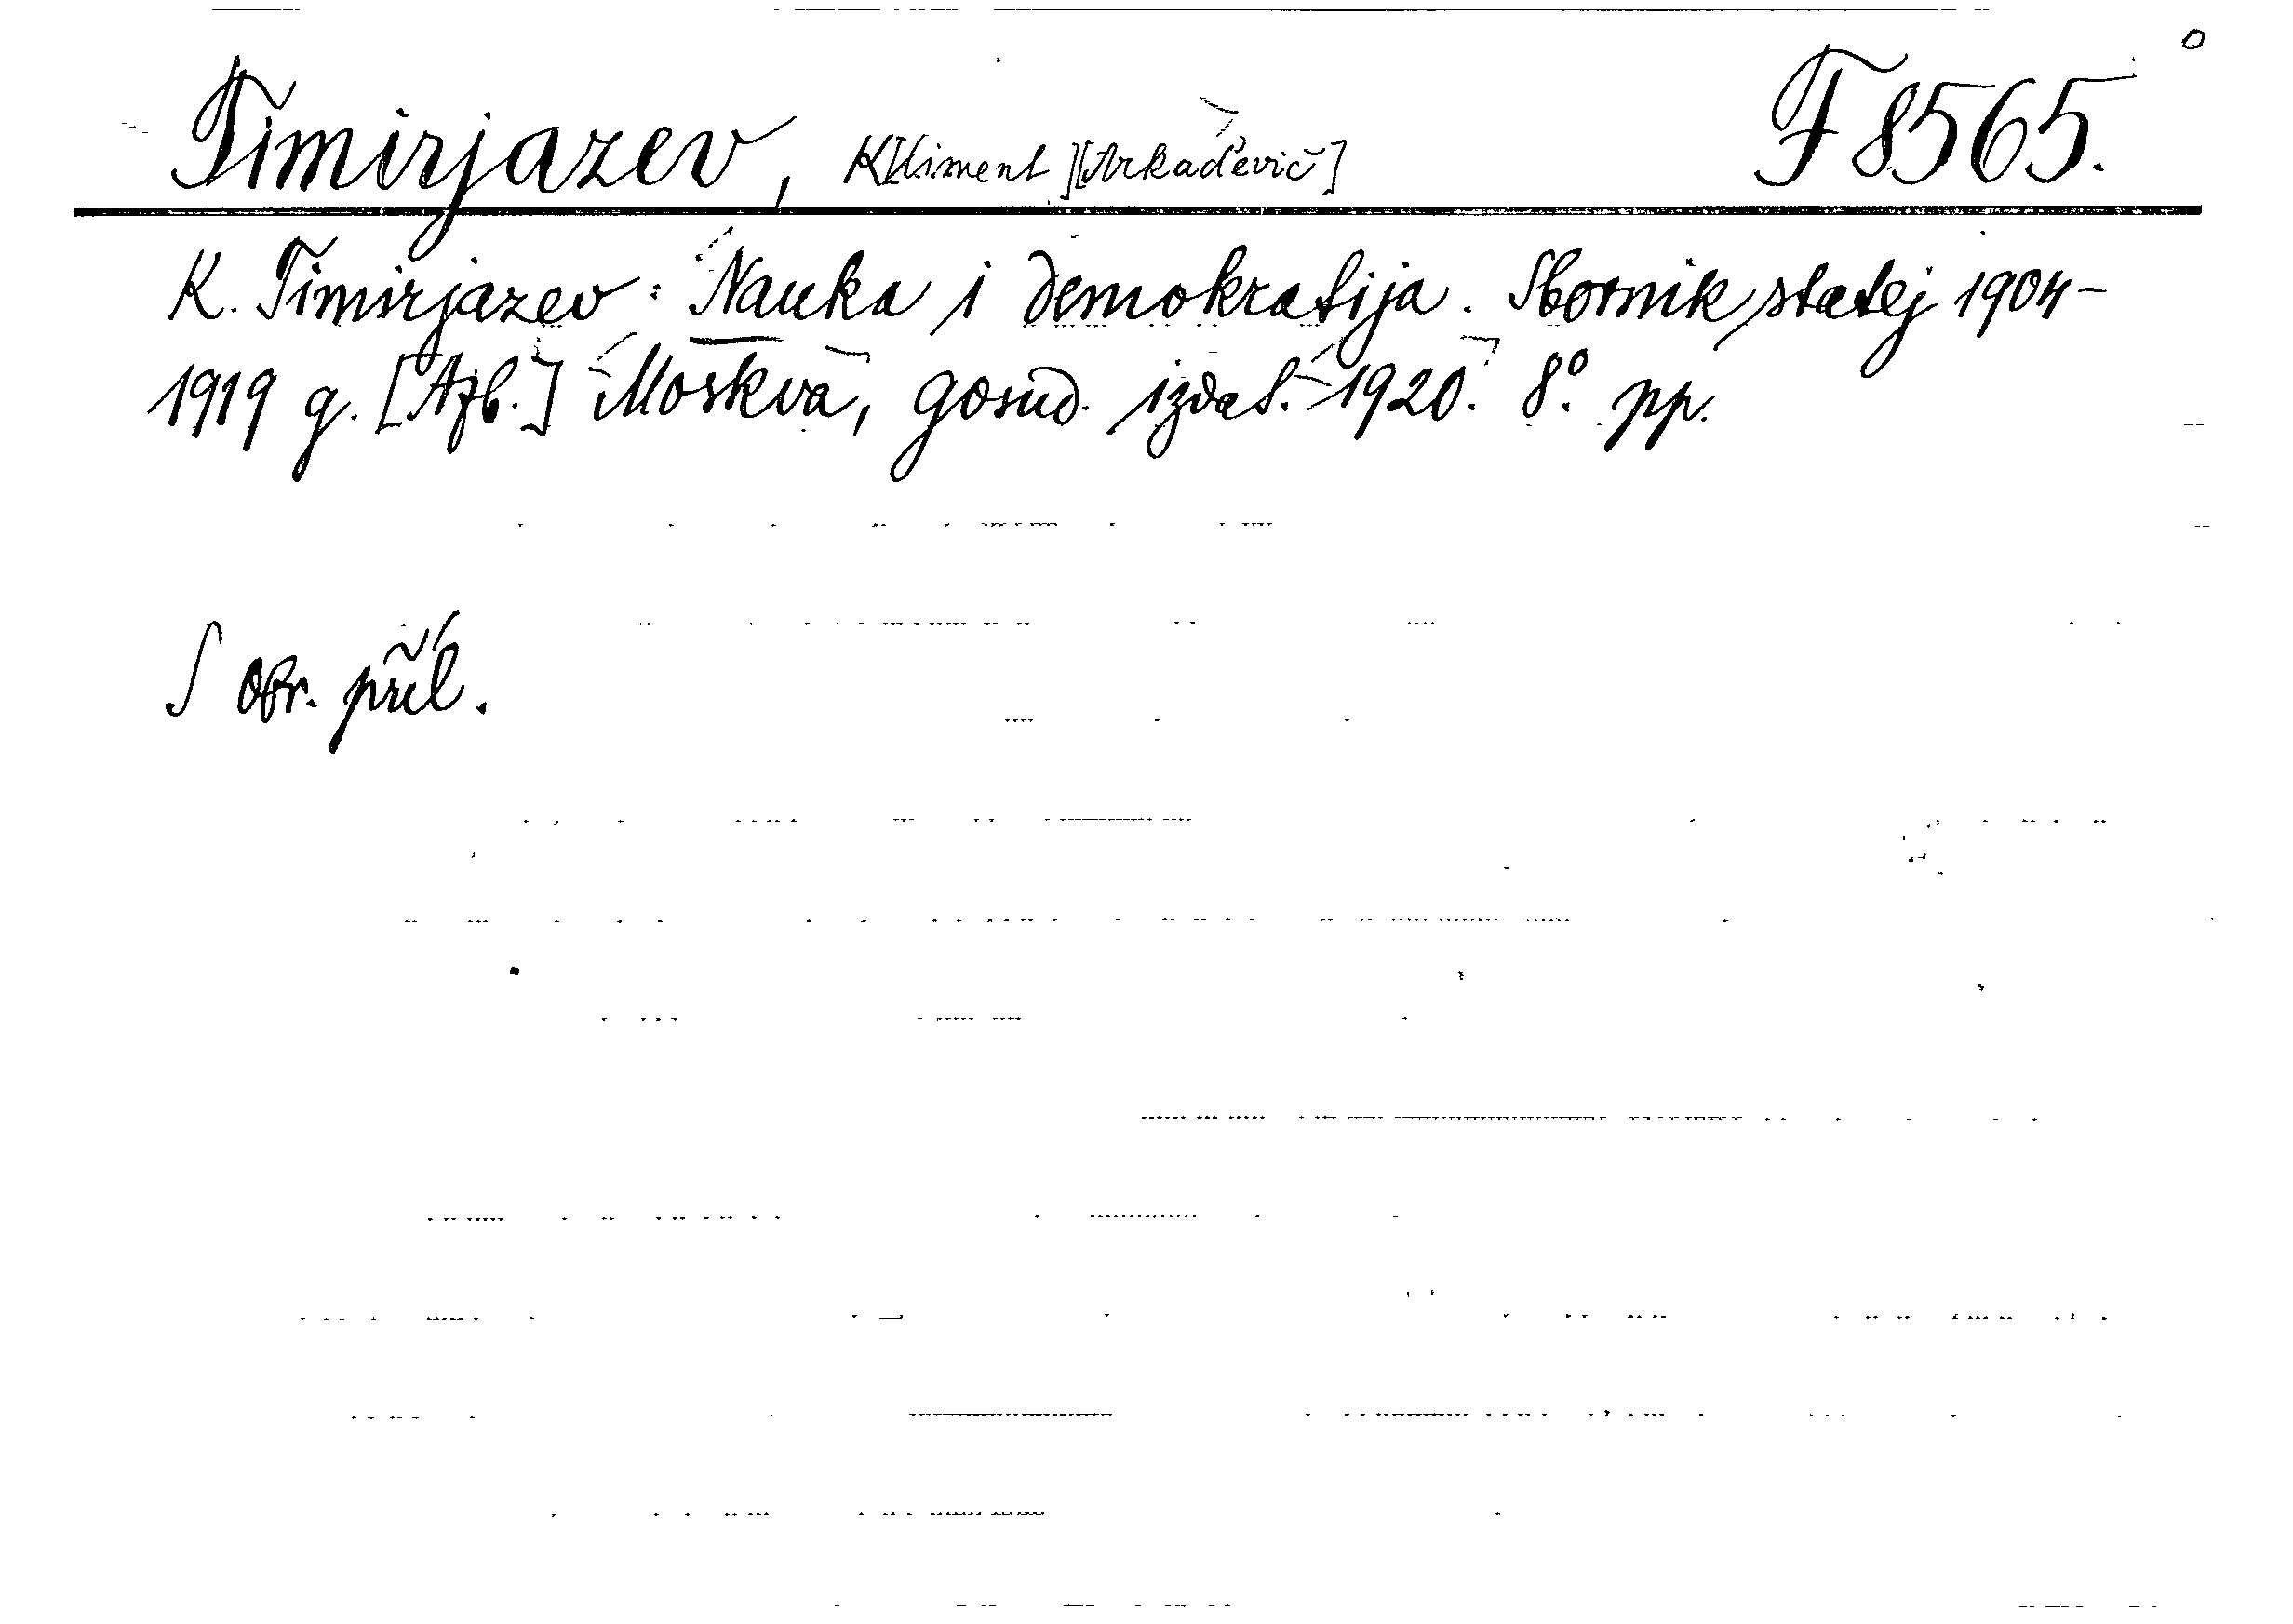 Timirjazev, K[liment][Arkaďevič] F 8565.
K. Timirjazev: Nauka i demokratija. Sbornik statej 1904-
1919 g. [Azb.] Moskva, gosud. izdat. 1920. 8°. pp.
S obr. příl.